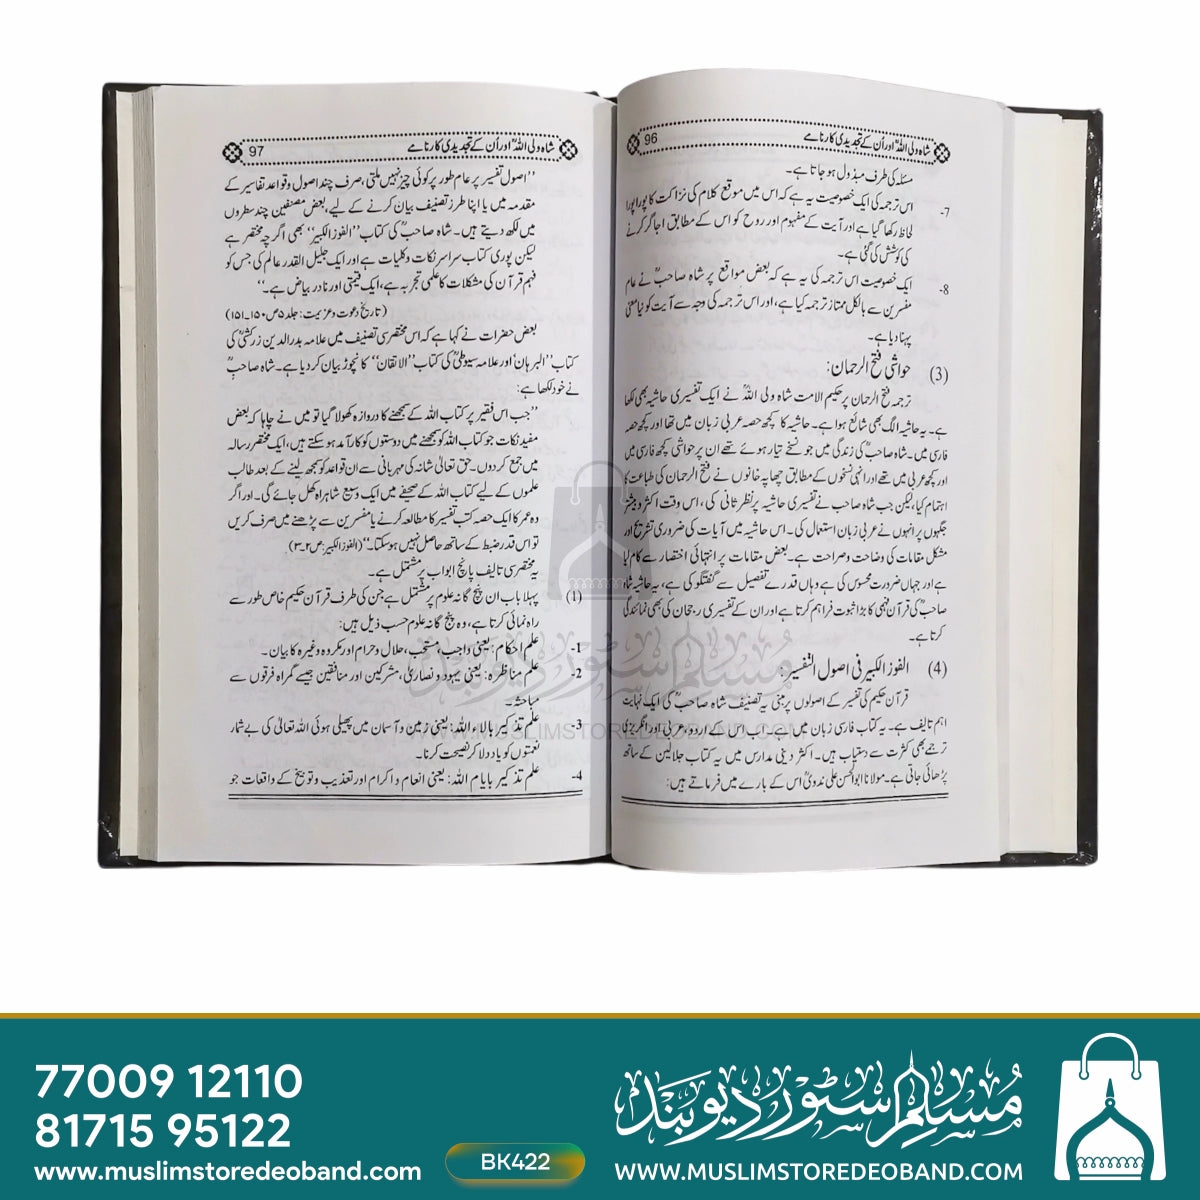 96 شاہ ولی اللہؒ اور اُن کے تجدیدی کارنامے
مسئلہ کی طرف مبذول ہو جاتا ہے۔
7- اس ترجمہ کی ایک خصوصیت یہ ہے کہ اس میں موقع کلام کی نزاکت کا پورا پورا
لحاظ رکھا گیا ہے اور آیت کے مفہوم اور روح کو اس کے مطابق اجاگر کرنے
کی کوشش کی گئی ہے۔
8- ایک خصوصیت اس ترجمہ کی یہ ہے کہ بعض مواقع پر شاہ صاحبؒ نے عام
مفسرین سے بالکل ممتاز ترجمہ کیا ہے، اور اس ترجمہ کی وجہ سے آیت کو نیا معنی
پہنا دیا ہے۔
(3) حواشی فتح الرحمان:
ترجمہ فتح الرحمان پر حکیم الامت شاہ ولی اللہؒ نے ایک تفسیری حاشیہ بھی لکھا
ہے۔ یہ حاشیہ الگ بھی شائع ہوا ہے۔ حاشیہ کا کچھ حصہ عربی زبان میں تھا اور کچھ حصہ
فارسی میں۔ شاہ صاحبؒ کی زندگی میں جو نسخے تیار ہوئے تھے ان پر حواشی کچھ فارسی میں
اور کچھ عربی میں تھے اور انہی نسخوں کے مطابق چھاپہ خانوں نے فتح الرحمان کی طباعت کا
اہتمام کیا، لیکن جب شاہ صاحب نے تفسیری حاشیہ پر نظر ثانی کی، اس وقت اکثر و بیشتر
جگہوں پر انہوں نے عربی زبان استعمال کی۔ اس حاشیہ میں آیات کی ضروری تشریح اور
مشکل مقامات کی وضاحت و صراحت ہے۔ بعض مقامات پر انتہائی اختصار سے کام لیا
ہے اور جہاں ضرورت محسوس کی ہے وہاں قدرے تفصیل سے گفتگو کی ہے، یہ حاشیہ شاہ
صاحبؒ کی قرآن فہمی کا بڑا ثبوت فراہم کرتا ہے اور ان کے تفسیری رجحان کی بھی نمائندگی
کرتا ہے۔
(4) الفوز الکبیر فی اصول التفسیر:
قرآن حکیم کی تفسیر کے اصولوں پر مبنی یہ تصنیف شاہ صاحبؒ کی ایک نہایت
اہم تالیف ہے۔ یہ کتاب فارسی زبان میں ہے۔ اب اس کے اردو، عربی اور انگریزی
ترجمے بھی کثرت سے دستیاب ہیں۔ اکثر دینی مدارس میں یہ کتاب جلالین کے ساتھ
پڑھائی جاتی ہے۔ مولانا ابوالحسن علی ندویؒ اس کے بارے میں فرماتے ہیں:
97 شاہ ولی اللہؒ اور اُن کے تجدیدی کارنامے
’’اصول تفسیر پر عام طور پر کوئی چیز نہیں ملتی، صرف چند اصول و قواعد تفاسیر کے
مقدمہ میں یا اپنا طرز تصنیف بیان کرنے کے لیے، بعض مصنفین چند سطروں
میں لکھ دیتے ہیں۔ شاہ صاحبؒ کی کتاب ’’الفوز الکبیر‘‘ بھی اگرچہ مختصر ہے
لیکن پوری کتاب سراسر نکات و کلیات ہے اور ایک جلیل القدر عالم کی جس کو
فہم قرآن کی مشکلات کا علمی تجربہ ہے، ایک قیمتی اور نادر بیاض ہے۔‘‘
(تاریخ دعوت و عزیمت: جلد ۵ ص ۱۵۰۔۱۵۱)
بعض حضرات نے کہا ہے کہ اس مختصر سی تصنیف میں علامہ بدرالدین زرکشیؒ کی
کتاب ’’البرہان‘‘ اور علامہ سیوطیؒ کی کتاب ’’الاتقان‘‘ کا نچوڑ بیان کر دیا ہے۔ شاہ صاحبؒ
نے خود لکھا ہے:
’’جب اس فقیر پر کتاب اللہ کے سمجھنے کا دروازہ کھولا گیا تو میں نے چاہا کہ بعض
مفید نکات جو کتاب اللہ کو سمجھنے میں دوستوں کو کارآمد ہو سکتے ہیں، ایک مختصر رسالہ
میں جمع کر دوں۔ حق تعالیٰ شانہ کی مہربانی سے ان قواعد کو سمجھ لینے کے بعد طالب
علموں کے لیے کتاب اللہ کے سمجھنے میں ایک وسیع شاہراہ کھل جائے گی۔ اور اگر
وہ عمر کا ایک حصہ کتب تفسیر کا مطالعہ کرنے یا مفسرین سے پڑھنے میں صرف کریں
تو اس قدر ضبط کے ساتھ حاصل نہیں ہو سکتا۔‘‘ (الفوز الکبیر: ص ۲۔۳)
یہ مختصر سی تالیف پانچ ابواب پر مشتمل ہے۔
(1) پہلا باب ان پنج گانہ علوم پر مشتمل ہے جن کی طرف قرآن حکیم خاص طور سے
راہ نمائی کرتا ہے، وہ پنج گانہ علوم حسب ذیل ہیں:
1- علم احکام: یعنی واجب، مستحب، حلال و حرام اور مکروہ وغیرہ کا بیان۔
2- علم مناظرہ: یعنی یہود و نصاریٰ، مشرکین اور منافقین جیسے گمراہ فرقوں سے
مباحثہ۔
3- علم تذکیر بالاء اللہ: یعنی زمین و آسمان میں پھیلی ہوئی اللہ تعالیٰ کی بے شمار
نعمتوں کو یاد دلا کر نصیحت کرنا۔
4- علم تذکیر بایام اللہ: یعنی انعام و اکرام اور تعذیب و توبیخ کے واقعات جو
مسلم سٹور دیوبند
WWW.MUSLIMSTOREDEOBAND.COM
77009 12110
81715 95122
www.muslimstoredeoband.com
BK422
مسلم سٹور دیوبند
WWW.MUSLIMSTOREDEOBAND.COM